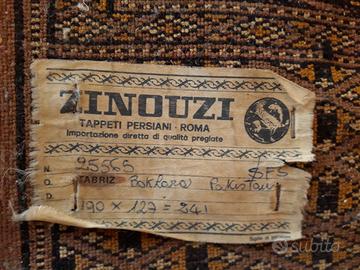 ZINOUZI
TAPPETI PERSIANI · ROMA
Importazione diretta di qualità pregiate
N. 25565 SFS
TABRIZ Bokkara Pakistan
D. 190 x 127 = 241
subito